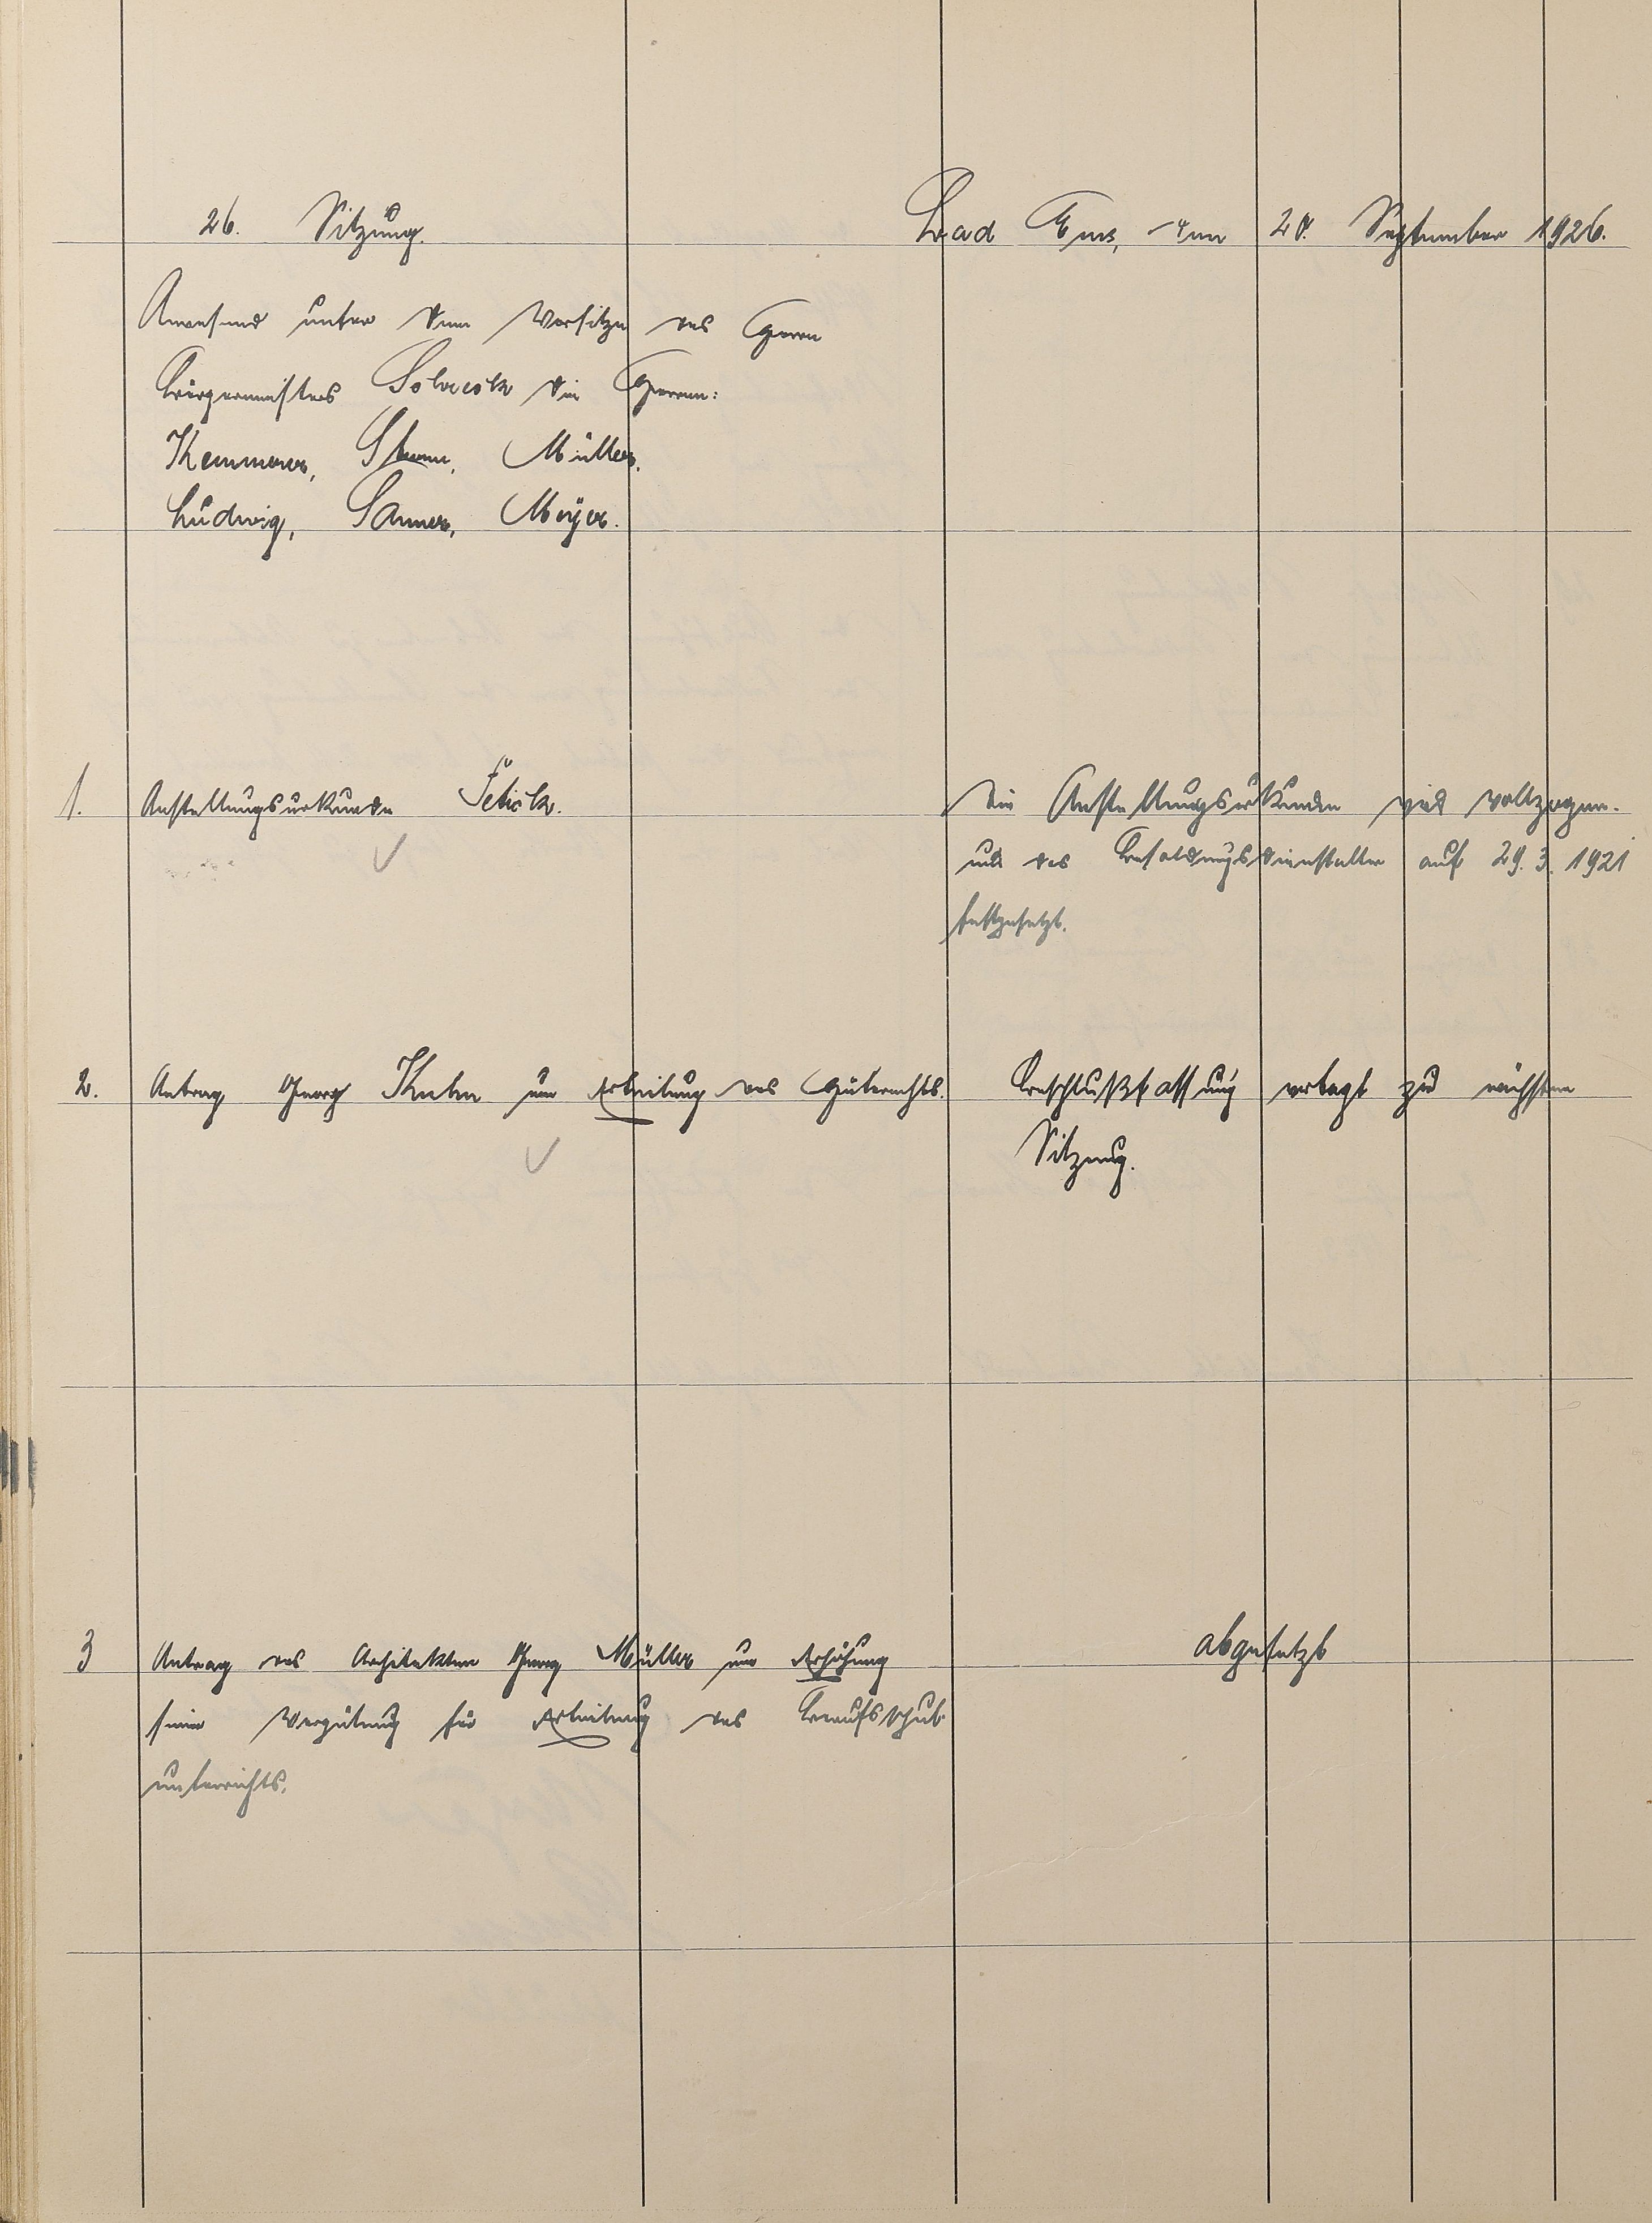 26. Sitzung.
Bad Ems, den 28. September 1926.
Anwesend unter dem Vorsitze des Herrn
Bürgermeisters die Herren:
Kemmerer, Sturm, Müller,
Ludwig, Sauer, Meyer.
1. Anstellungsurkunde
Die Anstellungsurkunde wird vollzogen.
und das Besoldungsdienstalter auf 29. 3. 1921
festgesetzt.
2. Antrag Georg um Erteilung des
Beschlußfassung vertagt zu nächsten
Sitzung.
3 Antrag des Architekten Georg Müller um Erhöhung
abgesetzt
seiner Vergütung für Erteilung des Berufsschul-
unterrichts.